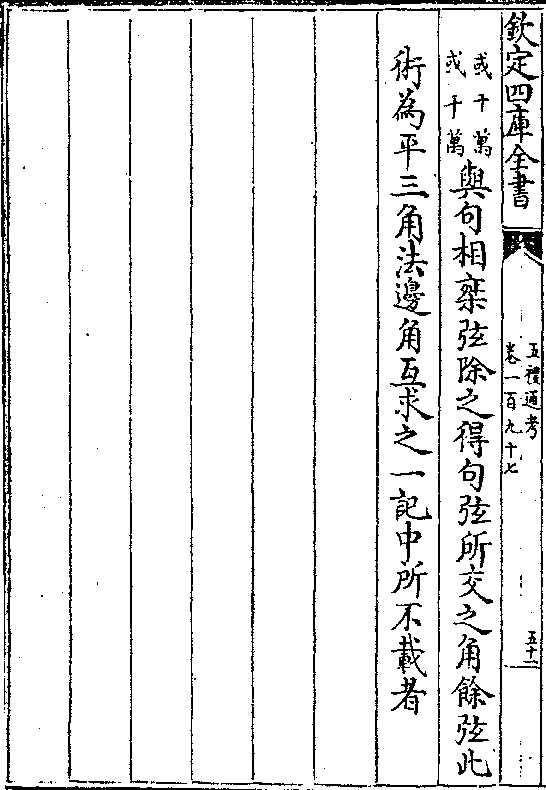 欽定四庫全書
五禮通考
卷一百九十七
五十一
或十萬
或千萬
與句相乘弦除之得句弦所交之角餘弦此
術為平三角法邊角互求之一記中所不載者